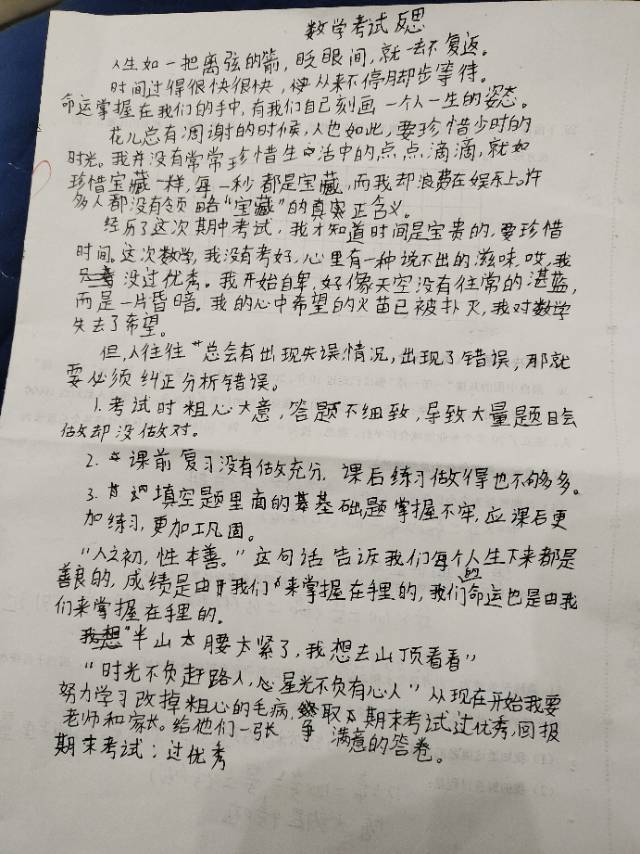 数学考试反思
人生如一把离弦的箭，眨眼间，就一去不复返。
时间过得很快很快，从来不停脚步等待。
命运掌握在我们的手中，有我们自己刻画一个人一生的姿态。
花儿总有凋谢的时候，人也如此，要珍惜少时的
时光。我并没有常常珍惜生活中的点点滴滴，就如
珍惜宝藏一样，每一秒都是宝藏，而我却浪费在娱乐上。许
多人都没有领略“宝藏”的真实正含义。
经历了这次期中考试，我才知道时间是宝贵的，要珍惜
时间。这次数学，我没有考好，心里有一种说不出的滋味，哎，我
没过优秀。我开始自卑，好像天空没有往常的湛蓝，
而是一片昏暗。我的心中希望的火苗已被扑灭，我对数学
失去了希望。
但，人往往总会有出现失误情况，出现了错误，那就
要必须纠正分析错误。
1.考试时粗心大意，答题不细致，导致大量题目会
做却没做对。
2.课前复习没有做充分，课后练习做得也不够多。
3.填空题里面的基础题掌握不牢，应课后更
加练习，更加巩固。
“人之初，性本善。”这句话告诉我们每个人生下来都是
善良的，成绩是由我们来掌握在手里的，我们的命运也是由我
们来掌握在手里的。
“半山腰太紧了，我想去山顶看看”
“时光不负赶路人，星光不负有心人”从现在开始我要
努力学习改掉粗心的毛病，争取期末考试过优秀，回报
老师和家长。给他们一张满意的答卷。
期末考试：过优秀